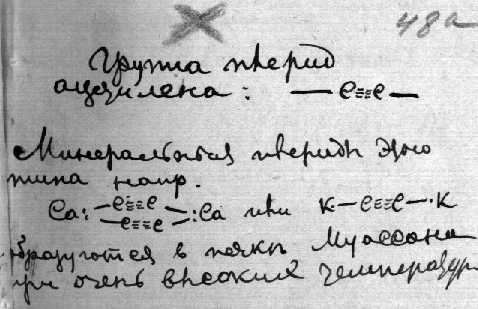 48а
Группа тверид
ацетилена: — C≡≡C —
Минеральныя твериды этого
типа напр.
Ca: C≡≡C C≡≡C :Ca или K—C≡≡C—K
образуются в печке Муассана
при очень высокий температур